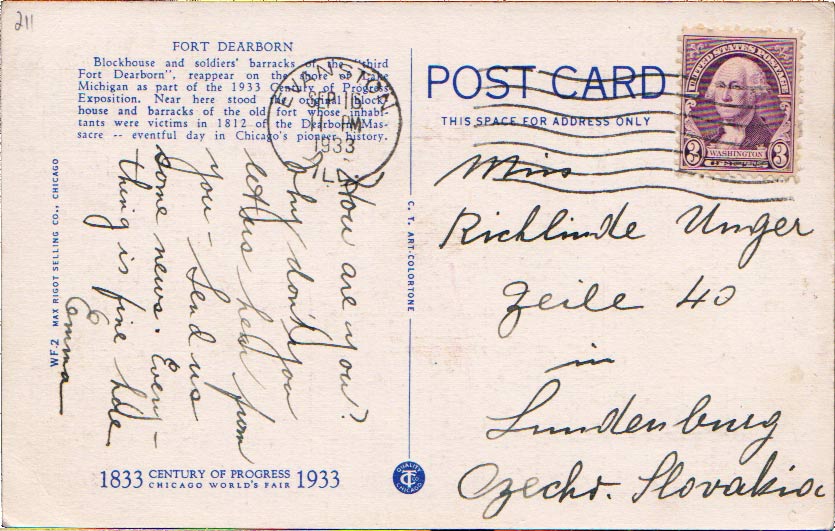 211
FORT DEARBORN
Blockhouse and soldiers' barracks of the "third
Fort Dearborn", reappear on the shore of Lake
Michigan as part of the 1933 Century of Progress
Exposition. Near here stood the original block-
house and barracks of the old fort whose inhabi-
tants were victims in 1812 of the Dearborn Mas-
sacre -- eventful day in Chicago's pioneer history.
EVANSTON
SEP 10
PM
1933
ILL.
POST CARD
THIS SPACE FOR ADDRESS ONLY
UNITED STATES POSTAGE
3 WASHINGTON 3
Miss
Richlinde Unger
Zeile 40
in
Lundenburg
Czecho. Slovakia
You are you?
Why don't you
let us hear from
you - Send us
some news. Every-
thing is fine
Emma
WF.2 MAX RIGOT SELLING CO., CHICAGO
C. T. ART-COLORTONE
1833 CENTURY OF PROGRESS 1933
CHICAGO WORLD'S FAIR
QUALITY
CT CO
CHICAGO